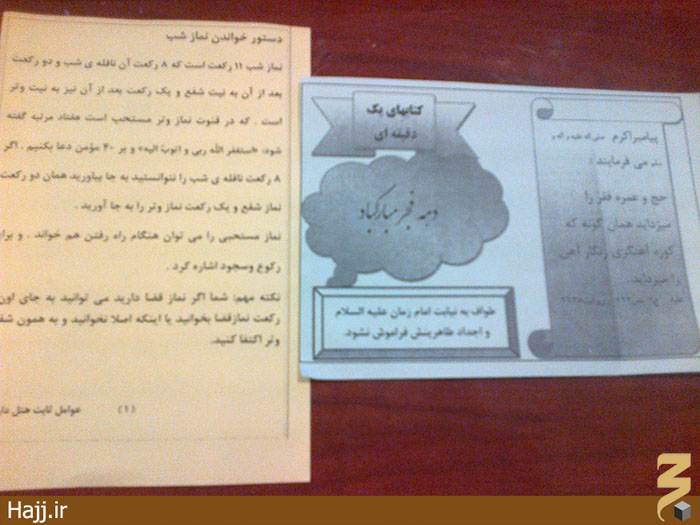 دستور خواندن نماز شب
نماز شب ۱۱ رکعت است که ۸ رکعت آن نافله ی شب و دو رکعت
بعد از آن به نیت شفع و یک رکعت بعد از آن نیز به نیت وتر
است . که در قنوت نماز وتر مستحب است هفتاد مرتبه گفته
شود: «استغفر الله ربی و اتوبُ الیه» و بر ۴۰ مؤمن دعا بکنیم . اگر
۸ رکعت نافله ی شب را نتوانستید به جا بیاورید همان دو رکعت
نماز شفع و یک رکعت نماز وتر را به جا آورید .
نماز مستحبی را می توان هنگام راه رفتن هم خواند . و برای
رکوع وسجود اشاره کرد .
نکته مهم: شما اگر نماز قضا دارید می توانید به جای اون
رکعت نمازقضا بخوانید یا اینکه اصلا نخوانید و به همون شف
وتر اکتفا کنید.
(۱) عوامل ثابت هتل دار
کتابهای یک
دقیقه ای
دهه فجر مبارکباد
طواف به نیابت امام زمان علیه السلام
و اجداد طاهرینش فراموش نشود.
پیامبراکرم صلی الله علیه و اله و
سلم می فرمایند :
حج و عمره فقر را
میزداید همان گونه که
کوره آهنگری زنگار آهن
را میزداید.
Hajj.ir